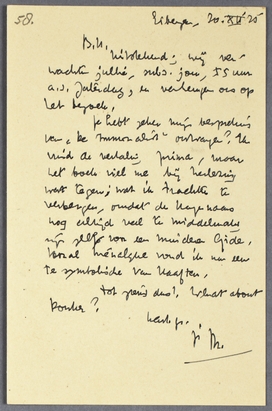 58.
Eibergen, 20.XII.25
B.H.
Uitstekend; wij ver-
wachten jullie, subs. jou, 15 uur
a.s. Zaterdag, en verheugen ons op
het bezoek.
Je hebt zeker mijn bespreking
van "de Immoralist" ontvangen? Ik
vind de vertaling prima, maar
het boek viel me bij herlezing
wat tegen; wat ik trachtte te
verbergen, omdat de
nog altijd veel te middelmatig
zijn zelfs voor een mindere Gide.
Vooral Ménalque vond ik nu een
te symbolische
tot ziens dus! What about
hart. gr.